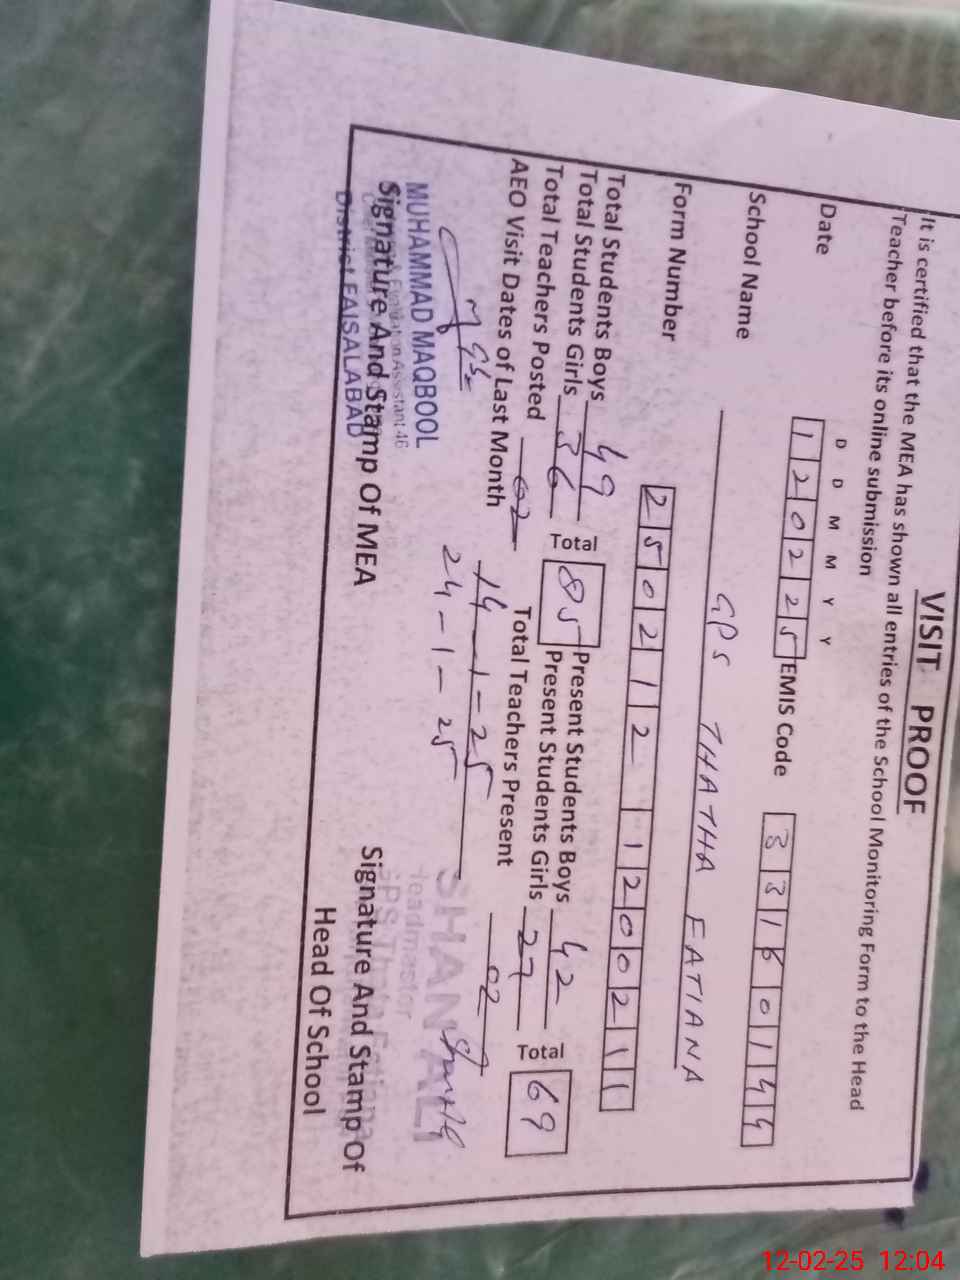 VISIT PROOF
It is certified that the MEA has shown all entries of the School Monitoring Form to the Head
Teacher before its online submission
D D M M Y Y
Date 120225 EMIS Code 33160144
School Name GPS THATHA FATIANA
Form Number 250212 1200211
Total Students Boys 49 Present Students Boys 42
Total Students Girls 36 Total 85 Present Students Girls 27 Total 69
Total Teachers Posted 02 Total Teachers Present 02
AEO Visit Dates of Last Month 14-1-25
24-1-25
MUHAMMAD MAQBOOL
Evaluation Assistant 46
District FAISALABAD
Signature And Stamp Of MEA
SHAN ALI
Headmaster
GPS Thatha Fatiana
Signature And Stamp Of
Head Of School
12-02-25 12:04